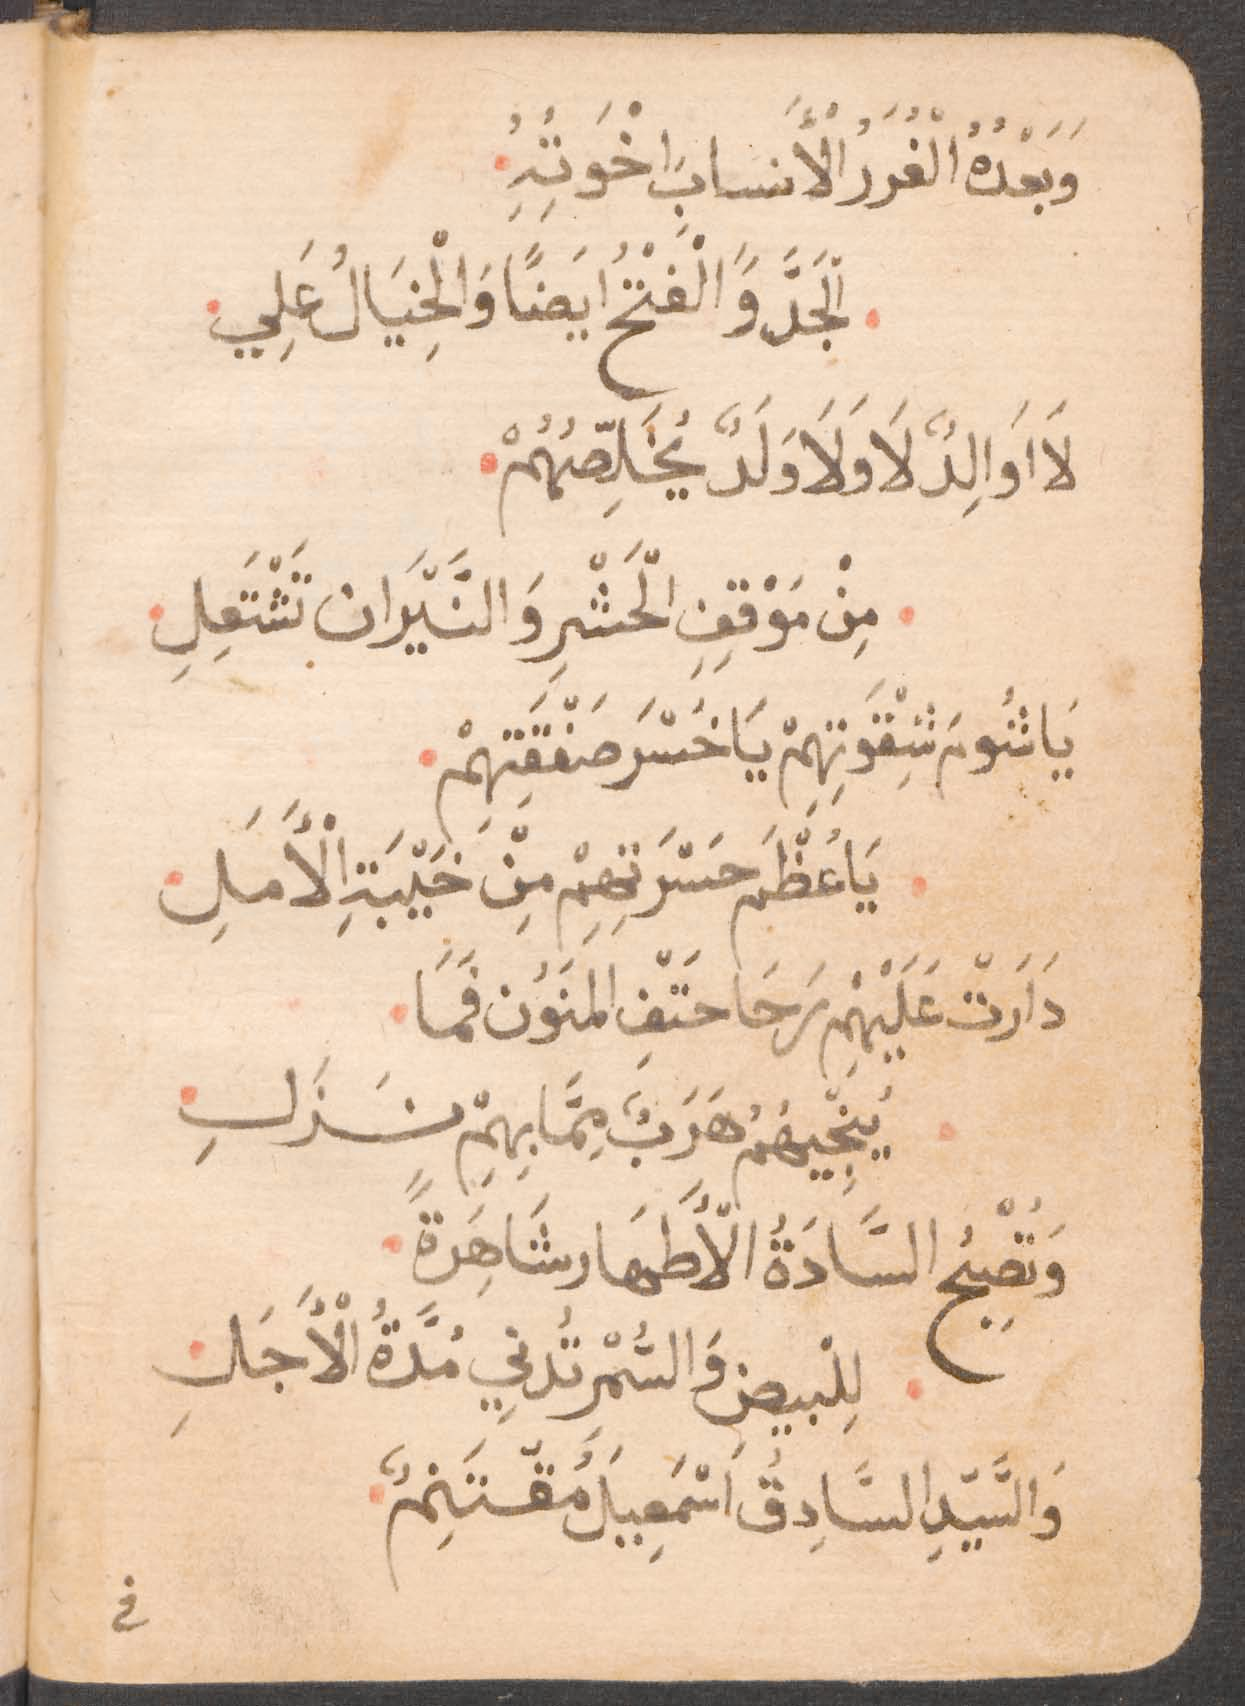 وَبَعْدُهُ الْغُرَرُ الْأَنسَابِ اخْوَتِهِ
الْجَدُّ وَالْفَتْحُ ايَضًا وَالْخِيَالُ عَلِي
لَا وَالِدٌ لَا وَلَا وَلَدٌ يُخَلِّصُهُمْ
مِنْ مَوْقِفِ الْحَشْرِ وَالنَّيْرَان تَشْتَعِلِ
يَا شُومَ شِقْوَتِهِمْ يَا خُسْرَ صَفْقَتِهِمْ
يَا عُظْمَ حَسْرَتِهِمْ مِنْ خَيْبَةِ الْأَمَلِ
دَارَتْ عَلَيْهِمْ رَحَا حَتْفِ المَنَوُن فَمَا
يُنْجِيهُمُ هَرَبٌ مِمَّا بِهِمْ نَزَلِ
وَتُصْبِحُ السَّادَةُ الْأَطهَار شَاهِرَةً
لِلْبيضِ وَالسُّمْرِ تُدْنِي مُدَّةُ الْأَجَلِ
وَالسَّيِّدِ السَّادِقُ اسْمَعِيلُ مُقْتَنِمٌ
في